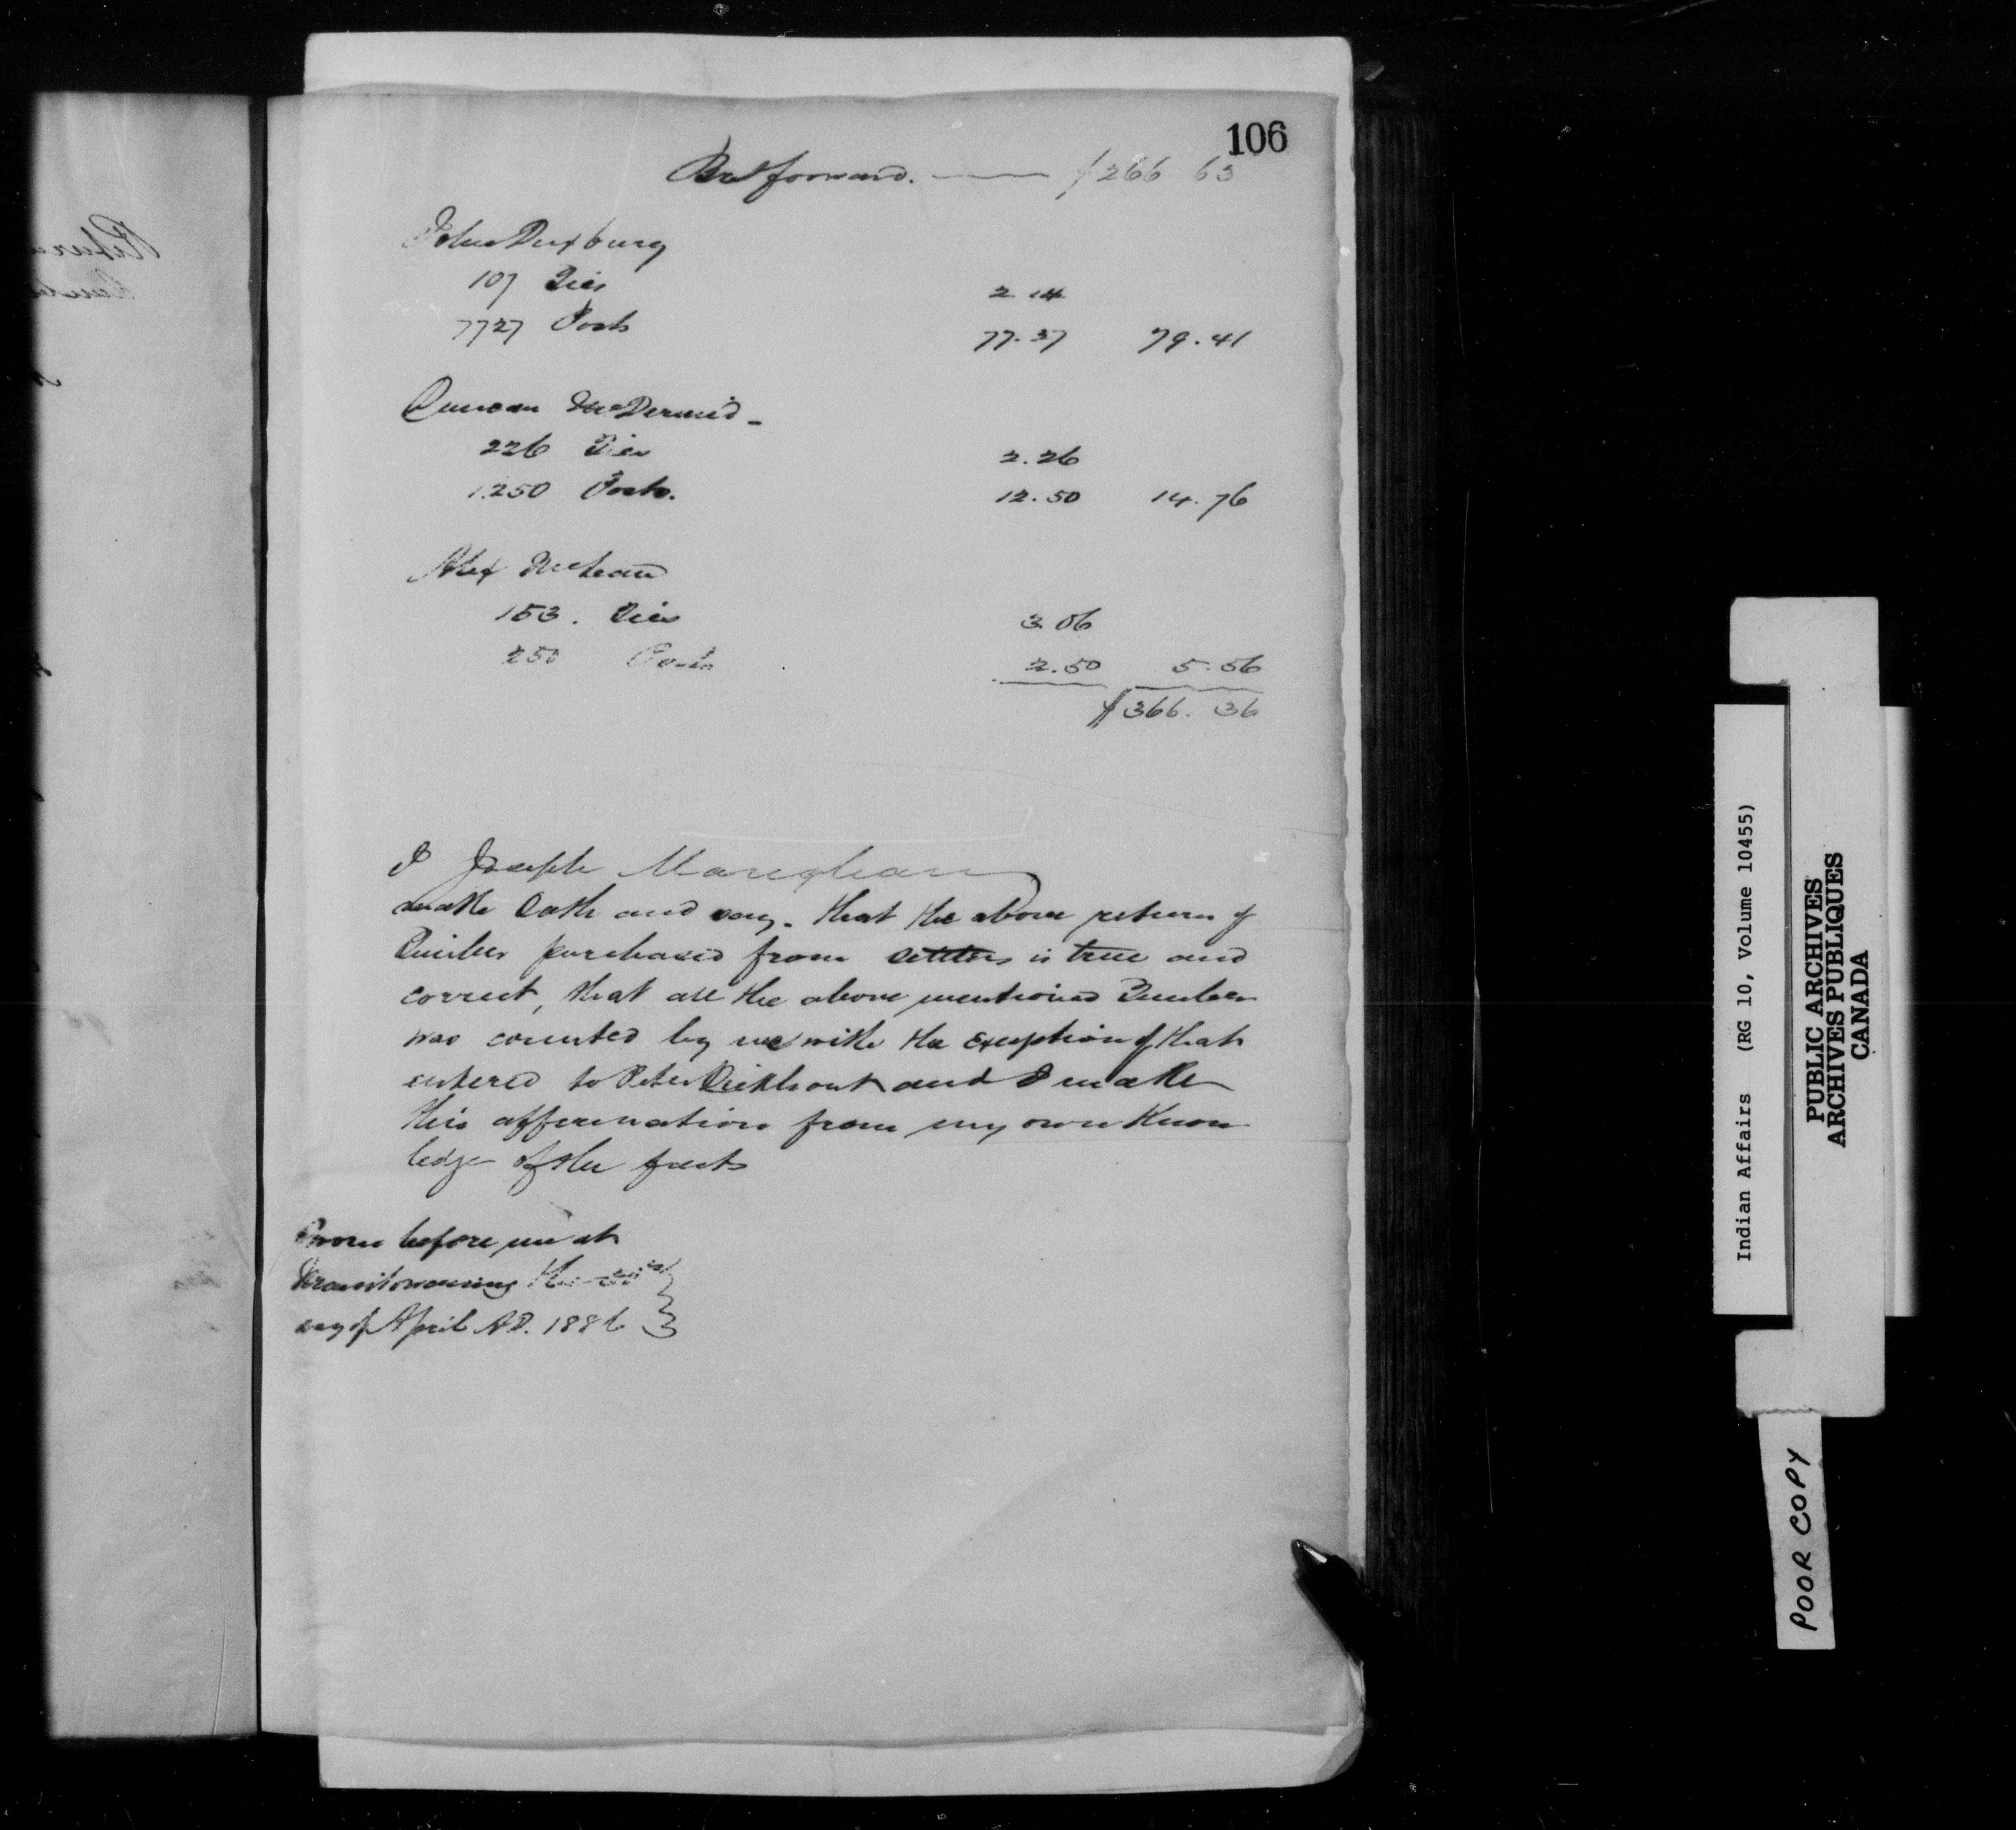 106
Brot forward. — $266 63
John Duxbury
107 Ties 2.14
7727 Posts 77.37 79.41
Duncan McDermid -
226 Ties 2.26
1.250 Posts. 12.50 14.76
Alex McLean
153. Ties 3.06
250 Posts 2.50 5.56
$366.36
I Joseph
make Oath and say. that the above return of
Timber purchased from settlers is true and
correct, that all the above mentioned Timber
was counted by me with the exception of that
entered to Peter and I make
this affirmation from my own Know
ledge of the facts
Sworn before me at
Manitowaning the
day of April A.D. 1886
Indian Affairs (RG 10, Volume 10455)
PUBLIC ARCHIVES
ARCHIVES PUBLIQUES
CANADA
POOR COPY